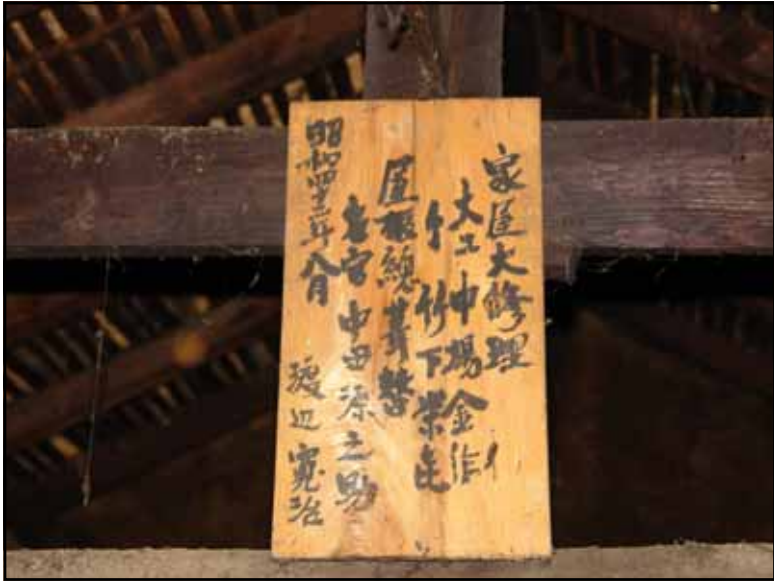 家屋大修理
大工 中場金作
〃 竹下栄
屋根總葺替
中田源之助
昭和四十二年八月 渡辺寛治